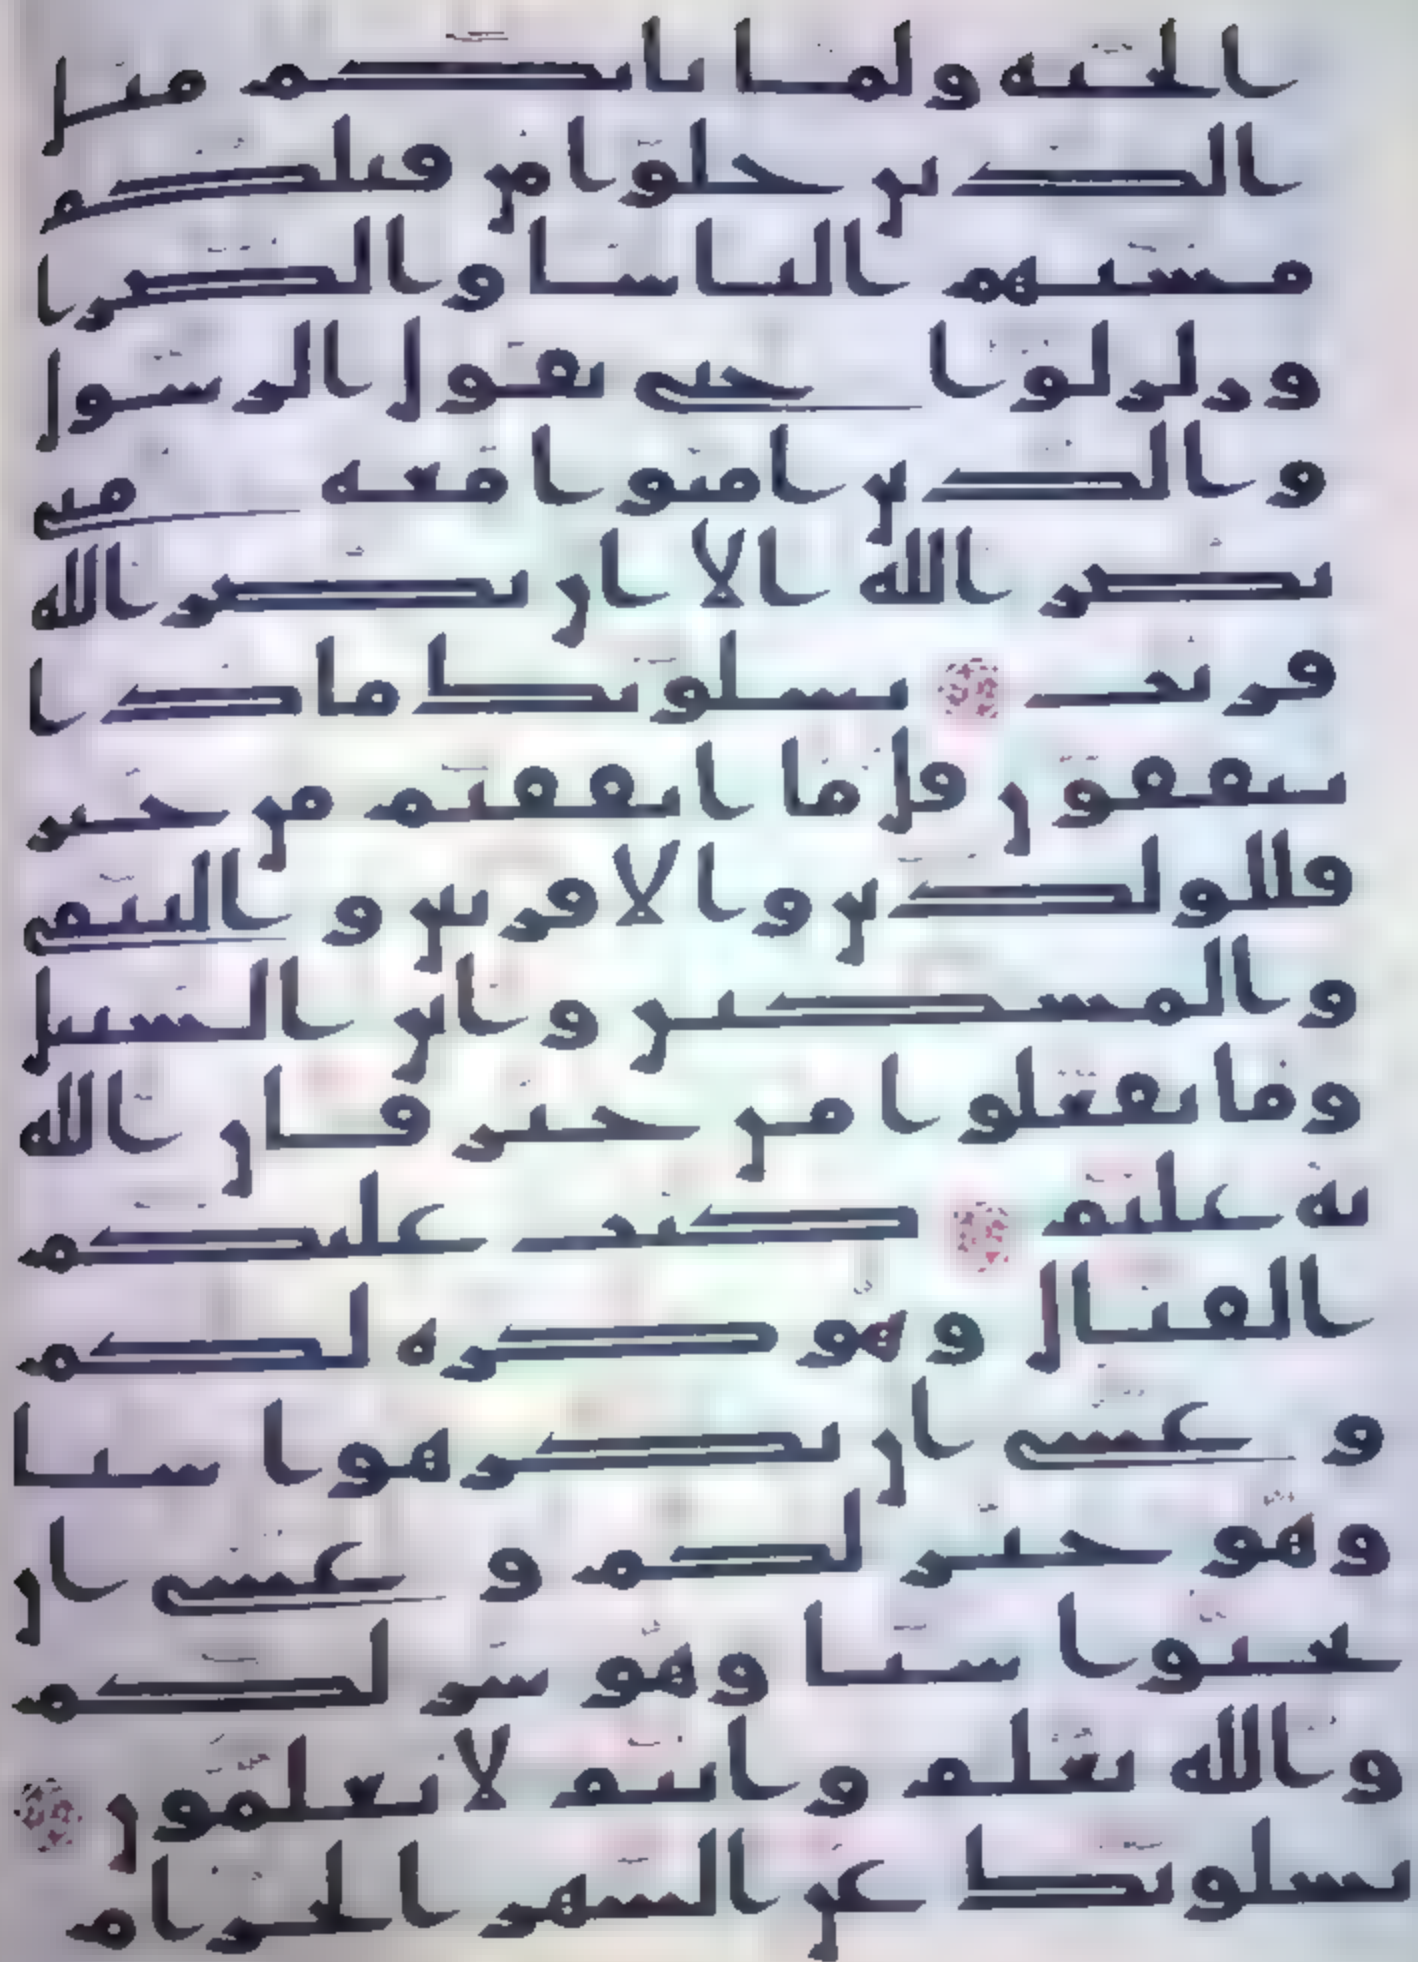 الجنه ولما ياتكم مثل
الذين خلوا من قبلكم
مستهم الباسا والضرا
وزلزلوا حتى يقول الرسول
والذين امنوا معه متى
نصر الله الا ان نصر الله
قريب يسلونك ماذا
ينفقون قل ما انفقتم من خير
فللولدين والاقربين واليتمى
والمسكين وابن السبيل
وما تفعلوا من خير فان الله
به عليم كتب عليكم
القتال وهو كره لكم
وعسى ان تكرهوا شيا
وهو خير لكم وعسى ان
تحبوا شيا وهو شر لكم
والله يعلم وانتم لا تعلمون
يسلونك عن الشهر الحرام